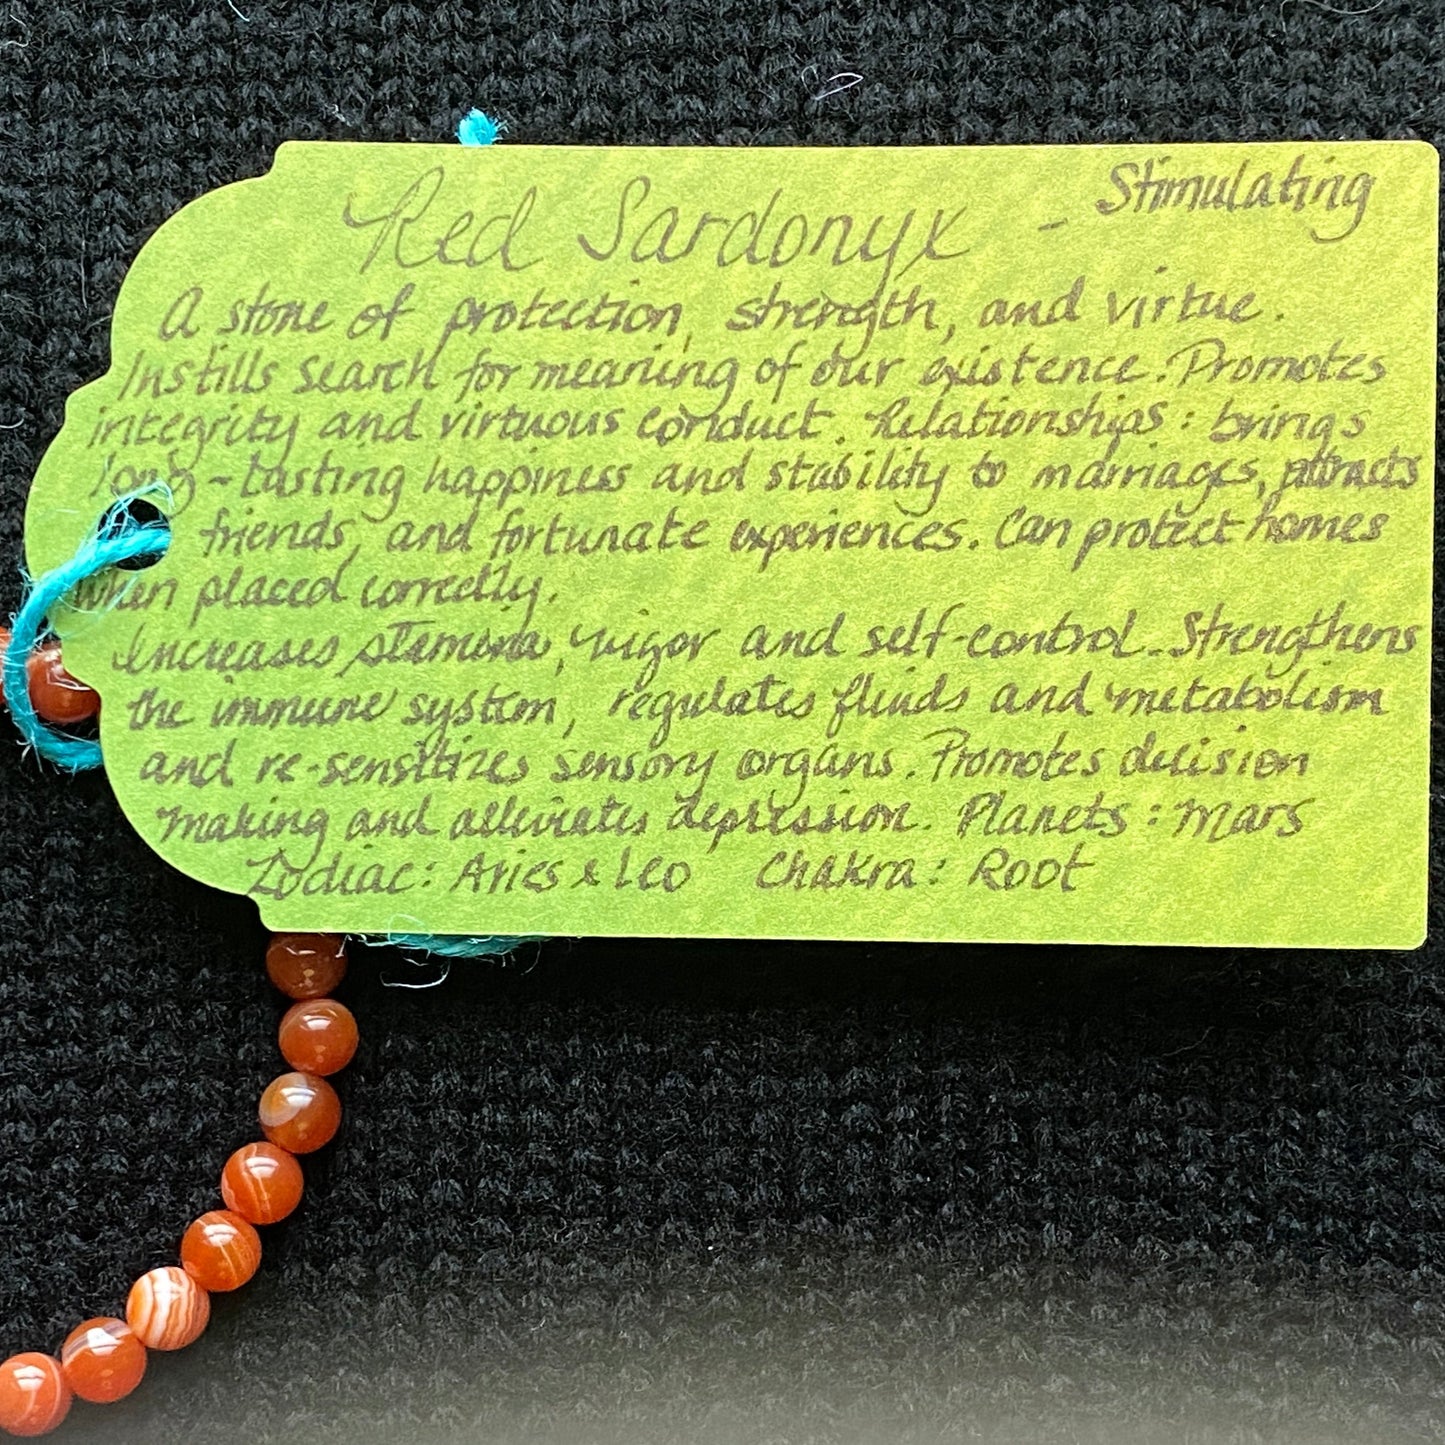 Red Sardonyx - Stimulating
A stone of protection, strength, and virtue.
Instills search for meaning of our existence. Promotes
integrity and virtuous conduct. Relationships: brings
long-lasting happiness and stability to marriages, attracts
friends, and fortunate experiences. Can protect homes
when placed correctly.
Increases stamina, vigor and self-control. Strengthens
the immune system, regulates fluids and metabolism
and re-sensitizes sensory organs. Promotes decision
making and alleviates depression. Planets: Mars
Zodiac: Aries & Leo Chakra: Root